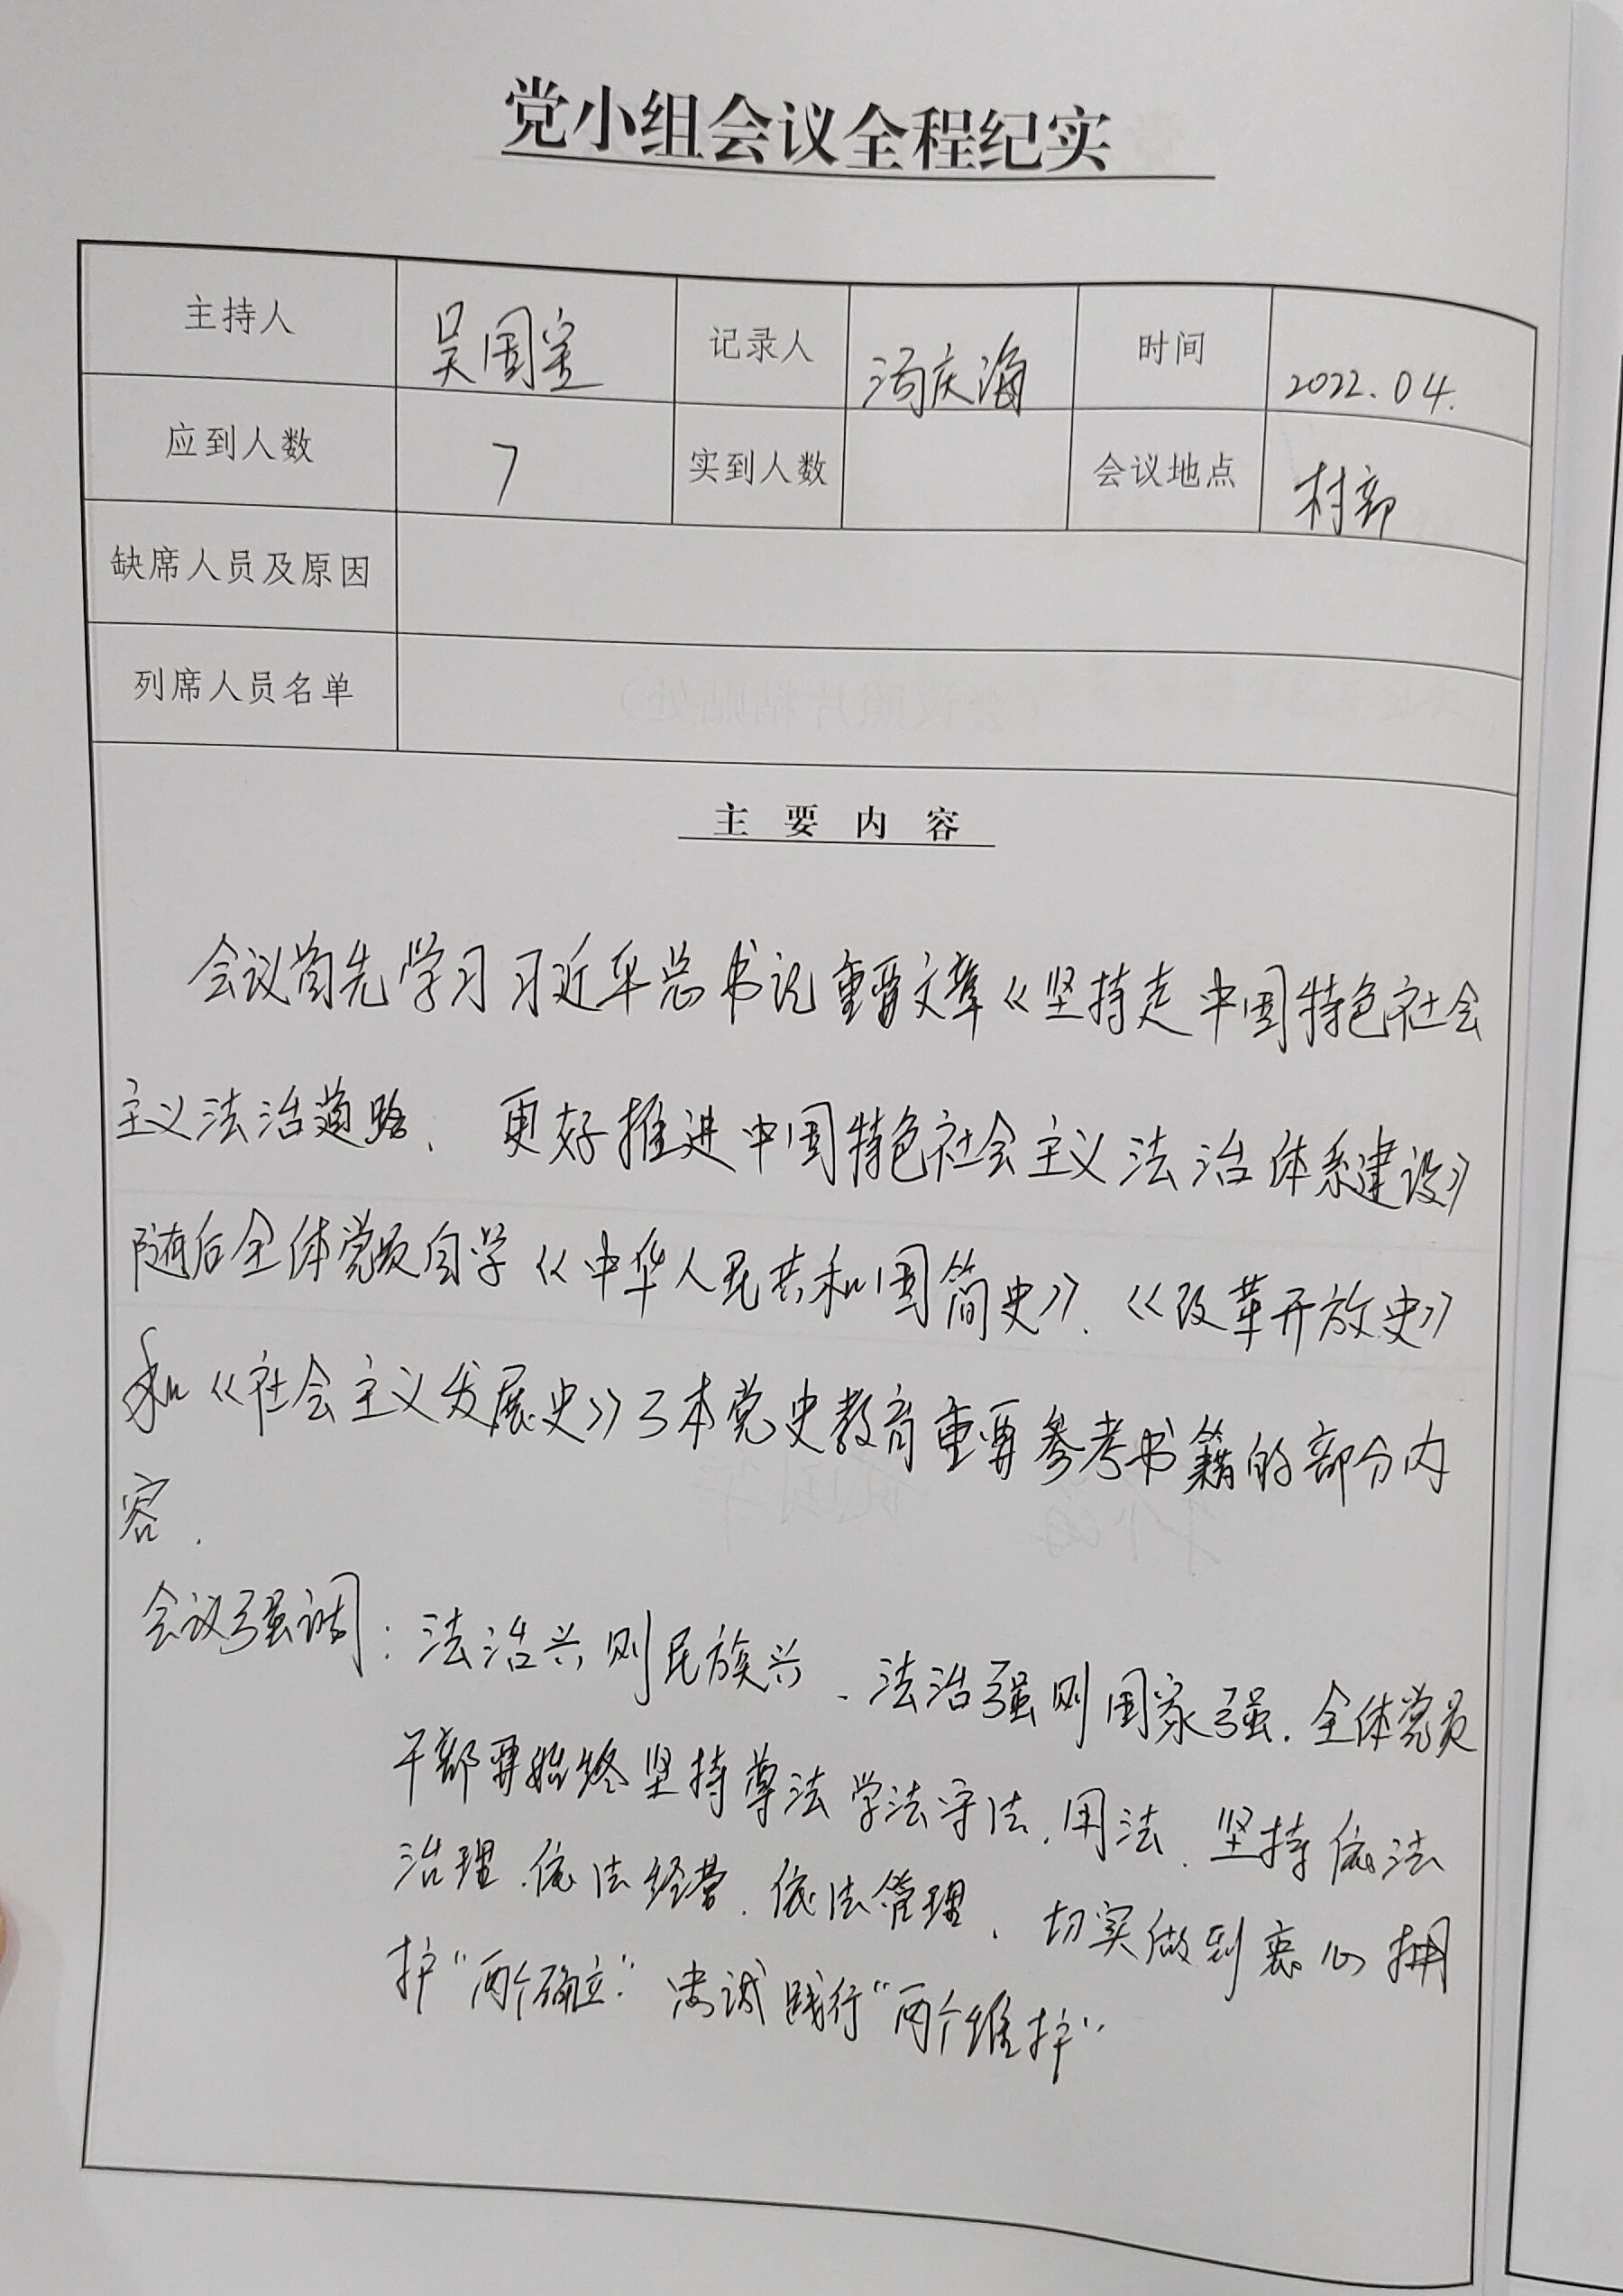 党小组会议全程纪实
主持人 吴国宝 记录人 汤庆海 时间 2022.04.
应到人数 7 实到人数 会议地点 村部
缺席人员及原因
列席人员名单
主要内容
会议首先学习习近平总书记重要文章《坚持走中国特色社会
主义法治道路、更好推进中国特色社会主义法治体系建设》
随后全体党员自学《中华人民共和国简史》、《改革开放史》
和《社会主义发展史》3本党史教育重要参考书籍的部分内
容.
会议强调：法治兴则民族兴、法治强则国家强.全体党员
干部要始终坚持尊法学法守法、用法、坚持依法
治理、依法经营、依法管理、切实做到衷心拥
护“两个确立”忠诚践行“两个维护”